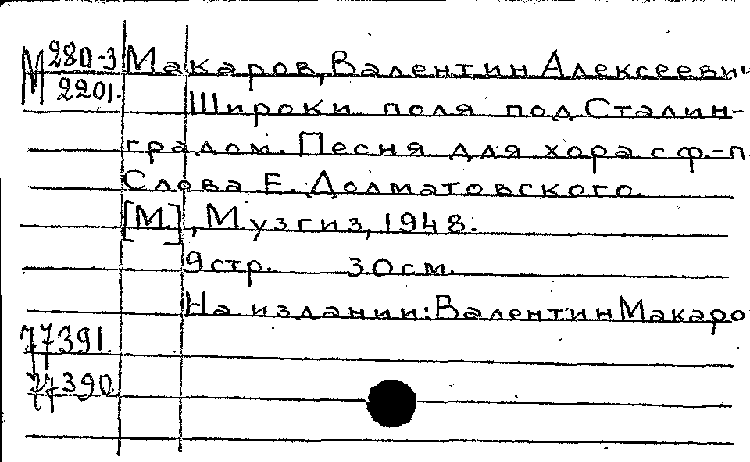 М 280-3 Макаров, Валентин Алексеевич
2201.
Широки поля под Сталин-
градом. Песня для хора с ф.-п.
Слова Е. Долматовского.
[М.], Музгиз, 1948.
9 стр. 30 см.
На издании: Валентин Макаро
77391
77390